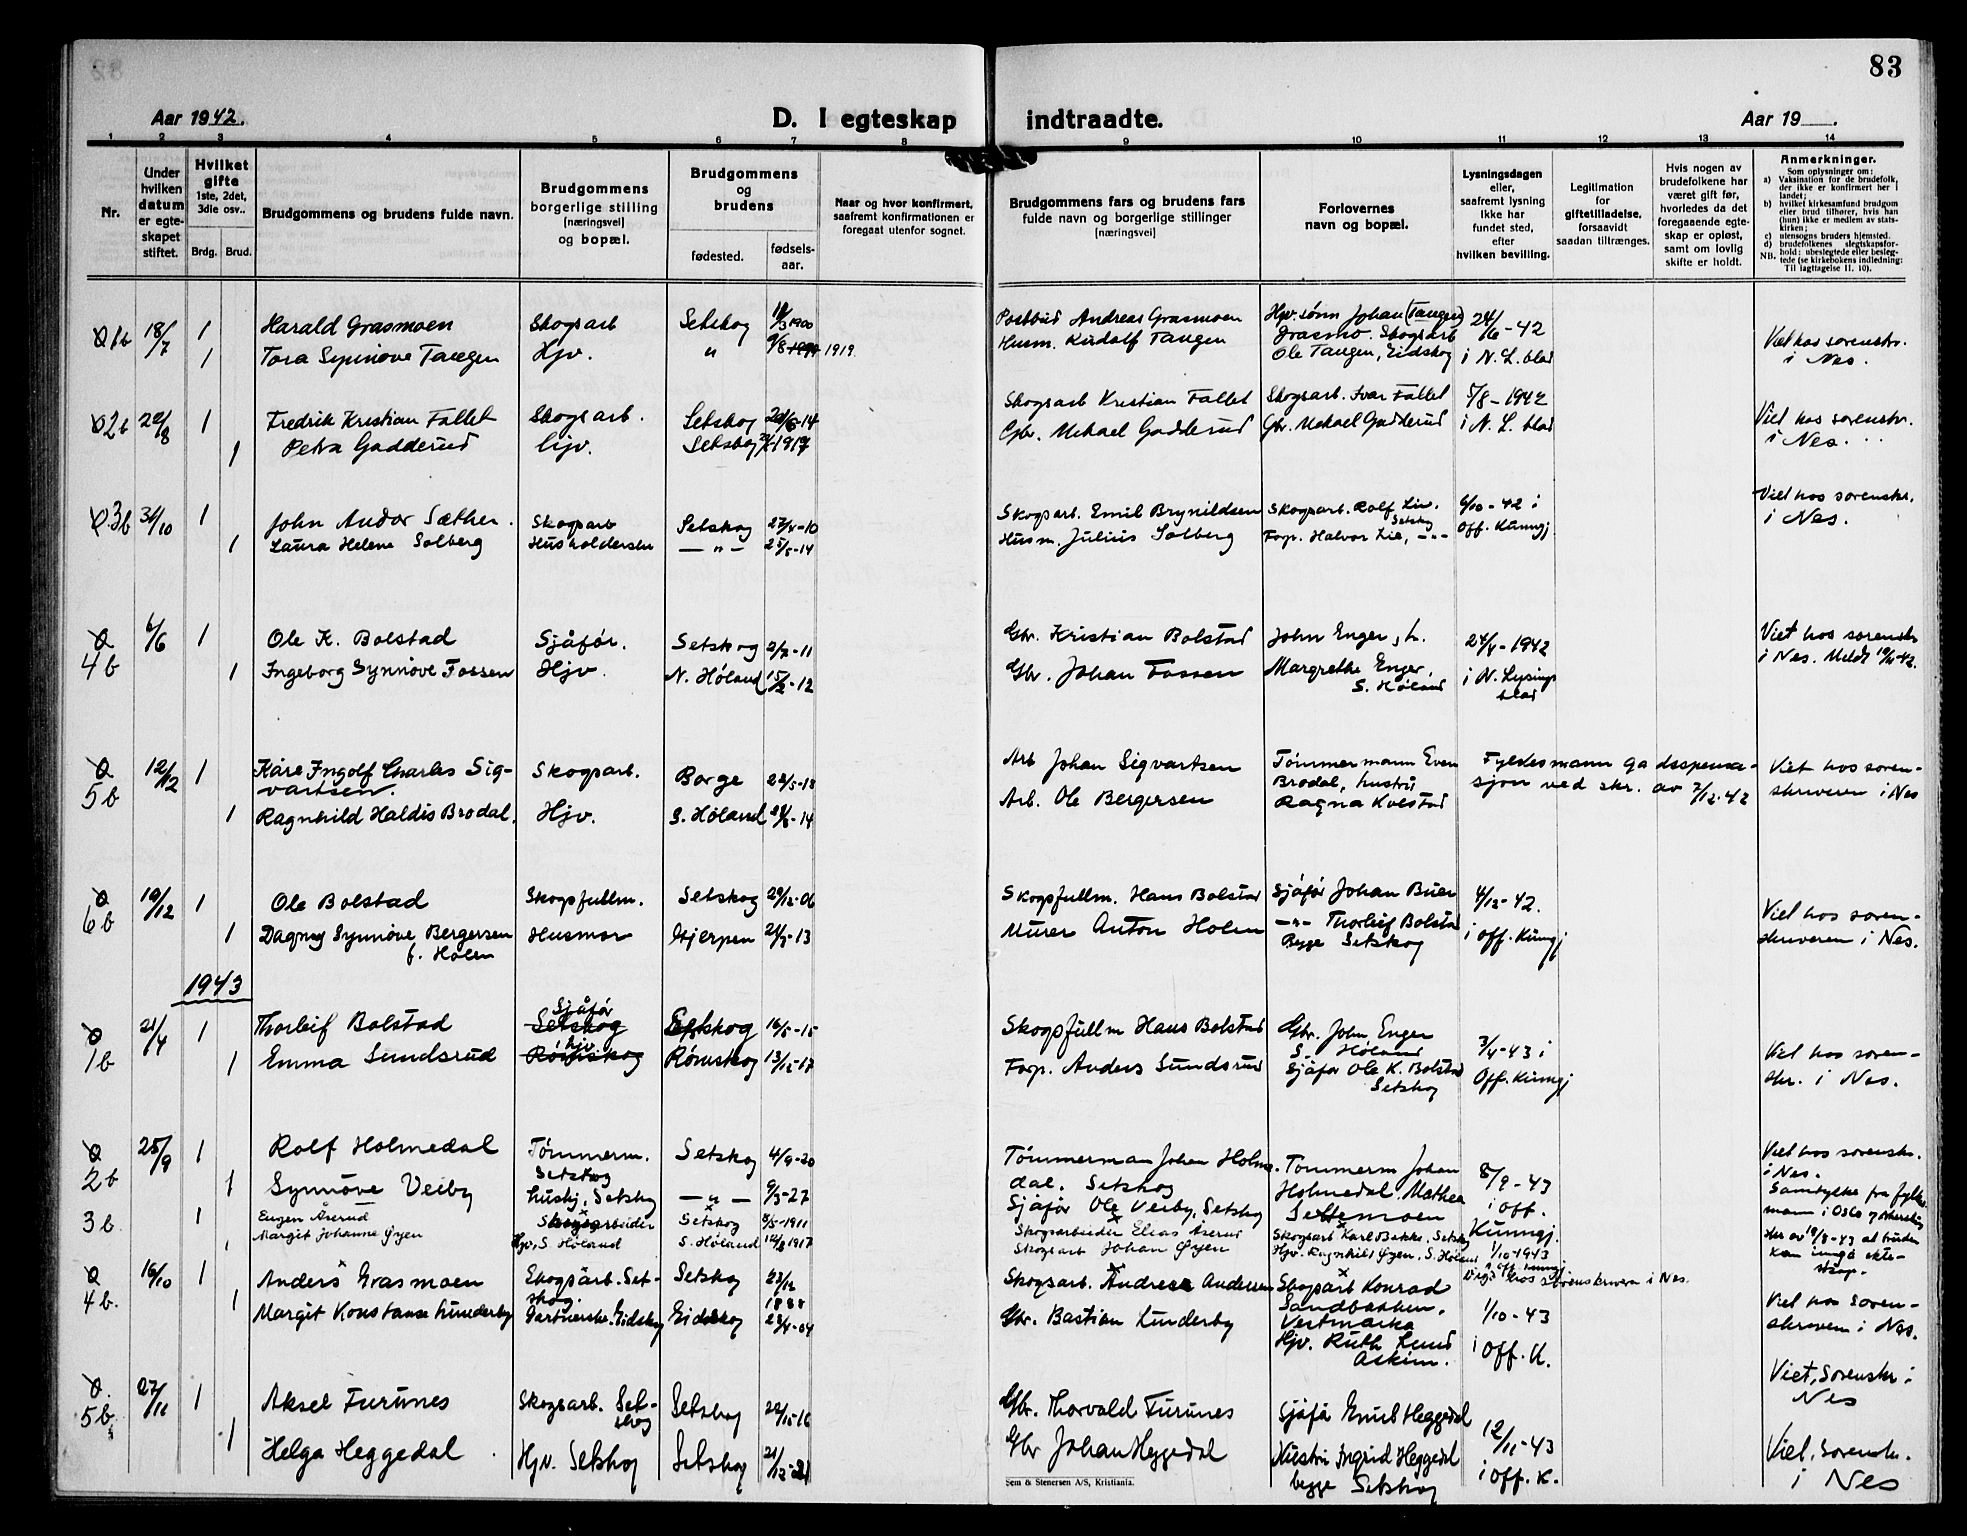 83
Aar 1942.
D. I egteskap indtraadte.
Aar 19 .
1 2 3 4 5 6 7 8 9 10 11 12 13 14
Nr.
Under hvilken datum er egteskapet stiftet.
Hvilket gifte 1ste, 2det, 3die osv..
Brdg. Brud.
Brudgommens og brudens fulde navn.
Brudgommens borgerlige stilling [næringsvei] og bopæl.
Brudgommens og brudens
fødested. fødselsaar.
Naar og hvor konfirmert, saafremt konfirmationen er foregaat utenfor sognet.
Brudgommens fars og brudens fars fulde navn og borgerlige stillinger [næringsvei]
Forlovernes navn og bopæl.
Lysningsdagen eller, saafremt lysning ikke har fundet sted, efter hvilken bevilling.
Legitimation for giftetilladelse, forsaavidt saadan tiltrænges.
Hvis nogen av brudefolkene har været gift før, hvorledes da det foregaaende egteskap er opløst, samt om lovlig skifte er holdt.
Anmerkninger.
Som oplysninger om:
a) Vaksination for de brudefolk, der ikke er konfirmert her i landet;
b) hvilket kirkesamfund brudgom eller brud tilhører, hvis han (hun) ikke er medlem av statskirken;
c) utensogns bruders hjemsted.
d) brudefolkenes slegtskapsforhold: ubeslegtede eller beslegtede (se kirkebokens indledning: Til iagttagelse II. 10).
NB.
1b 18/7 1 Harald Grasmoen Skogsarb Setskog 1900 Postbud Andreas Grasmoen Hjv. sønn Johan (Tangen) 24/6-42
1 Tora Synnøve Tangen Hjv. " 1919. Husm. Rudolf Tangen Grasmo. Skogsarb Ole Tangen, Eidskog i N. L. blad Viet hos sorenskr. i Nes.
2b 22/8 1 Fredrik Kristian Fallet Skogsarb. Setskog Skogsarb Kristian Fallet Skogsarb. Ivar Fallet 5/8-1942
1 Petra Gadderud Hjv. Setskog Gbr. Mikael Gadderud Gbr. Mikael Gadderud i N. L. blad Viet hos sorenskr. i Nes.
3b 31/10 1 John Andor Sæther. Skogsarb Setskog 27/4-10 Skogsarb. Emil Brynildsen Skogsarb. Rolf Lie. Setskog 6/10-42 i
1 Laura Helene Solberg Husholderske -"- 25/5-14 Husm. Julius Solberg Forp. Halvor Lie, -"- Off. Kunngj. Viet hos sorenskr. i Nes.
4b 6/6 1 Ole K. Bolstad Sjåfør. Setskog 2/7-11 Gbr. Kristian Bolstad John Enger, h. 24/4-1942
1 Ingeborg Synnøve Fossen Hjv. N. Høland 15/2-12 Gbr. Johan Fossen Margrethe Enger, S. Høland i N. Lysings blad Viet hos sorenskr i Nes.
5b 12/12 1 Kåre Ingolf Charles Sigvartsen. Skogsarb. Borge 22/5-18 Arb Johan Sigvartsen Tømmermann Even Fylkesmann
1 Ragnhild Haldis Brodal. Hjv. S. Høland Arb. Ole Bergersen Brodal, hustru Ragna Kolstad sjon ved skr. av 7/12-42 Viet hos sorenskriveren i Nes
6b 19/12 1 Ole Bolstad Skogsfullm. Setskog 29/12-06 Skogsfullm. Hans Bolstad Sjåfør Johan Buer 4/12-42.
1 Dagny Synnøve Bergersen f. Holen Husmor Gjerpen 24/9-13 Murer Anton Holen -"- Thorleif Bolstad Begge Setskog i off. Kungj Viet hos sorenskriveren i Nes.
1943
1b 21/4 1 Thorleif Bolstad Sjåfør Setskog 16/5-15 Skogsfullm Hans Bolstad Gbr. John Enger S. Høland 3/4-43 i
1 Emma Sundsrud hjv. Rømskog 13/12-17 Forp. Anders Sundsrud Sjåfør Ole K. Bolstad Setskog Off. Kunngj Viet hos sorenskr. i Nes.
2b 25/9 1 Rolf Holmedal Tømmerm. Setskog Setskog 4/9-20 Tømmerman Johan Holmedal. Setskog Tømmerm Johan 8/9-43
1 Synnøve Veiby hushj, Setskog -"- 9/3-27 Sjåfør Ole Veiby, Setskog Holmedal. Mathea Settemoen i off. Kunngj. Viet hos sorenskr. i Nes.
Samtykke fra fylkesmann i Oslo og Akershus
3b 1 Eugen Åserud Skogsarbeider Setskog 1911 Skogsarbeider Elias Åserud Skogsarb Karl Bakke, Setskog 1/10-1943
1 Margit Johanne Øyen Hjv, S. Høland S. Høland 1917 Skogsarb Johan Øyen Hjv. Ragnhild Øyen, S. Høland i off. kunngj
Viet hos sorenskriveren i Nes.
4b. 16/10 1 Anders Grasmoen Skogsarb. Setskog. Setskog 23/12 1888 Skogsarb. Andreas Andersen Skogsarb Konrad Sandbakken, Vestmarka 1/10-43
1 Margit Konstanse Lunderby Gartnerske. Eidskog Eidskog 23/4-04 Gbr. Bastian Lunderby Hjv. Ruth Lund Askim. i Off. K. Viet hos sorenskriveren i Nes.
5b 27/11 1 Aksel Furunes Skogsarb. Setskog Setskog Gbr. Thorvald Furunes Sjåfør Emil Heggedal 12/11-43
1 Helga Heggedal Hjv. Setskog Setskog 21/12-21 Gbr Johan Heggedal Hustru Ingrid Heggedal begge Setskog i Off. K. Viet, Sorenskr. i Nes
Viet, Sorenskr. i Nes
Sem & Stenersen A/S, Kristiania.